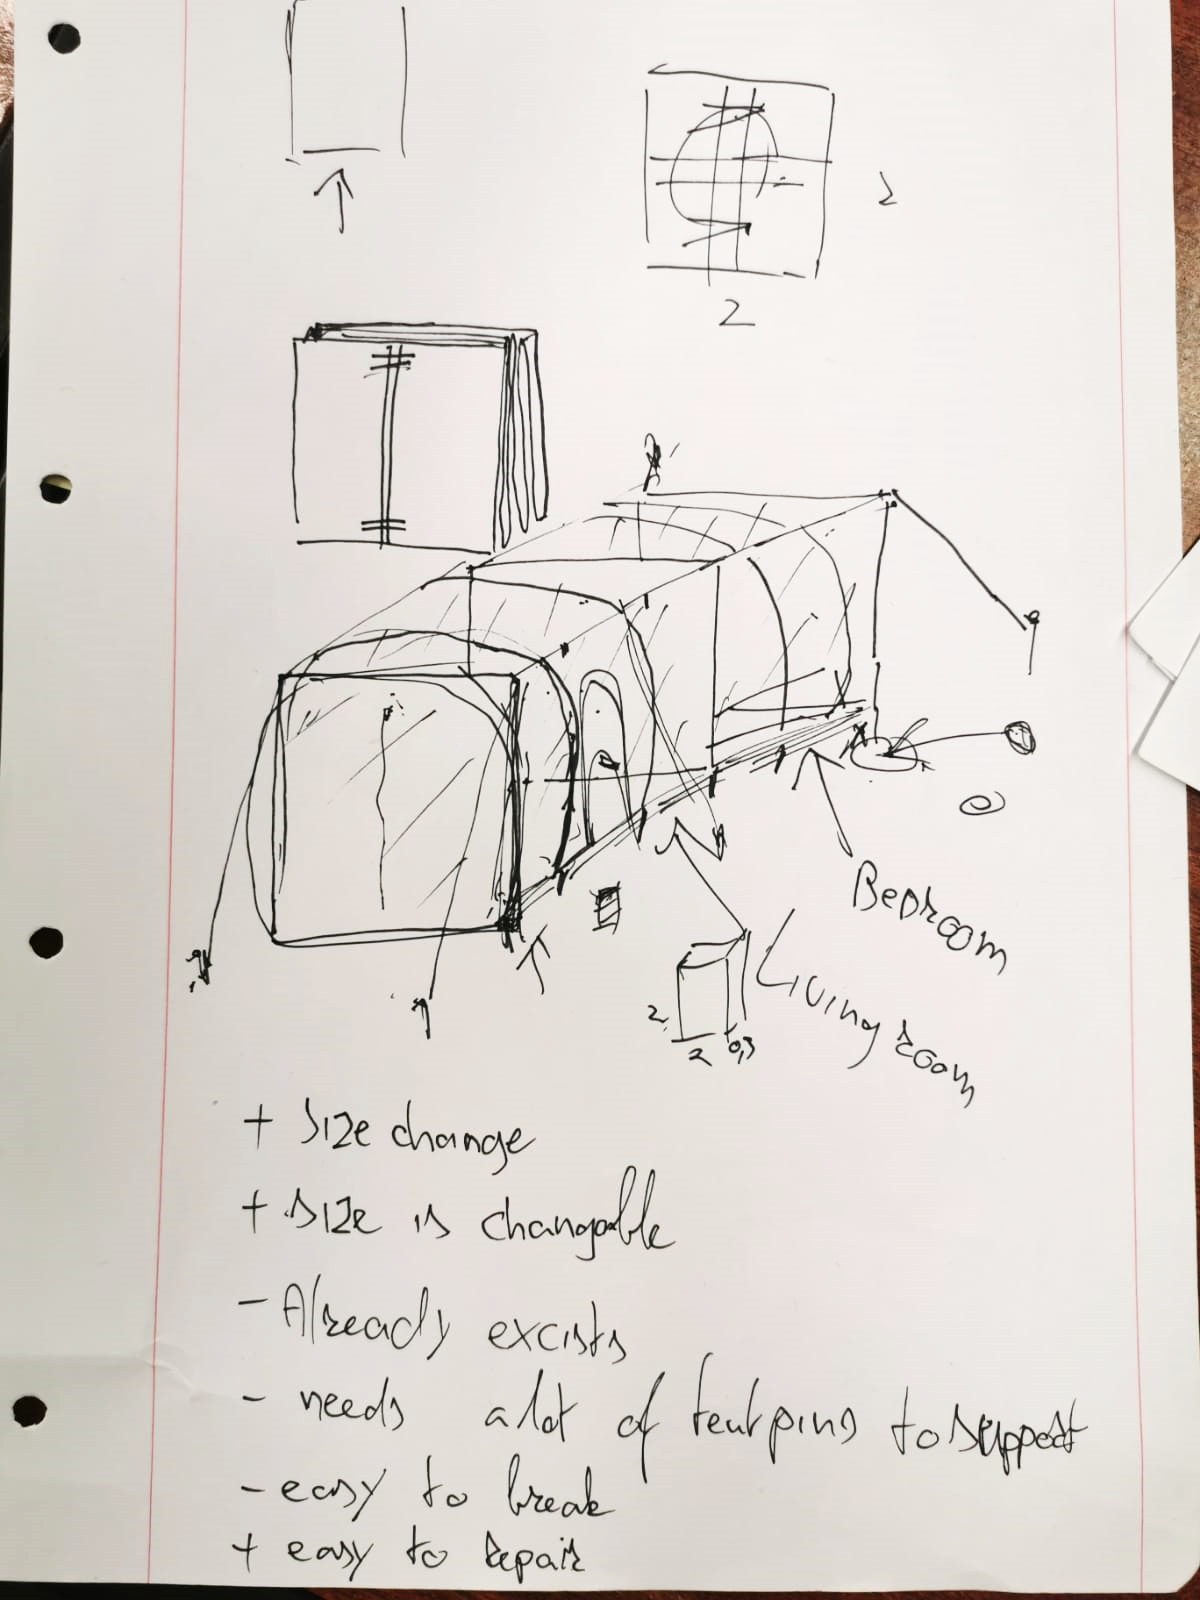 2
2
Bedroom
Living room
2
2 0,3
+ Size change
+ size is changable
- Already excists
- needs a lot of tent pins to support
- easy to break
+ easy to repair